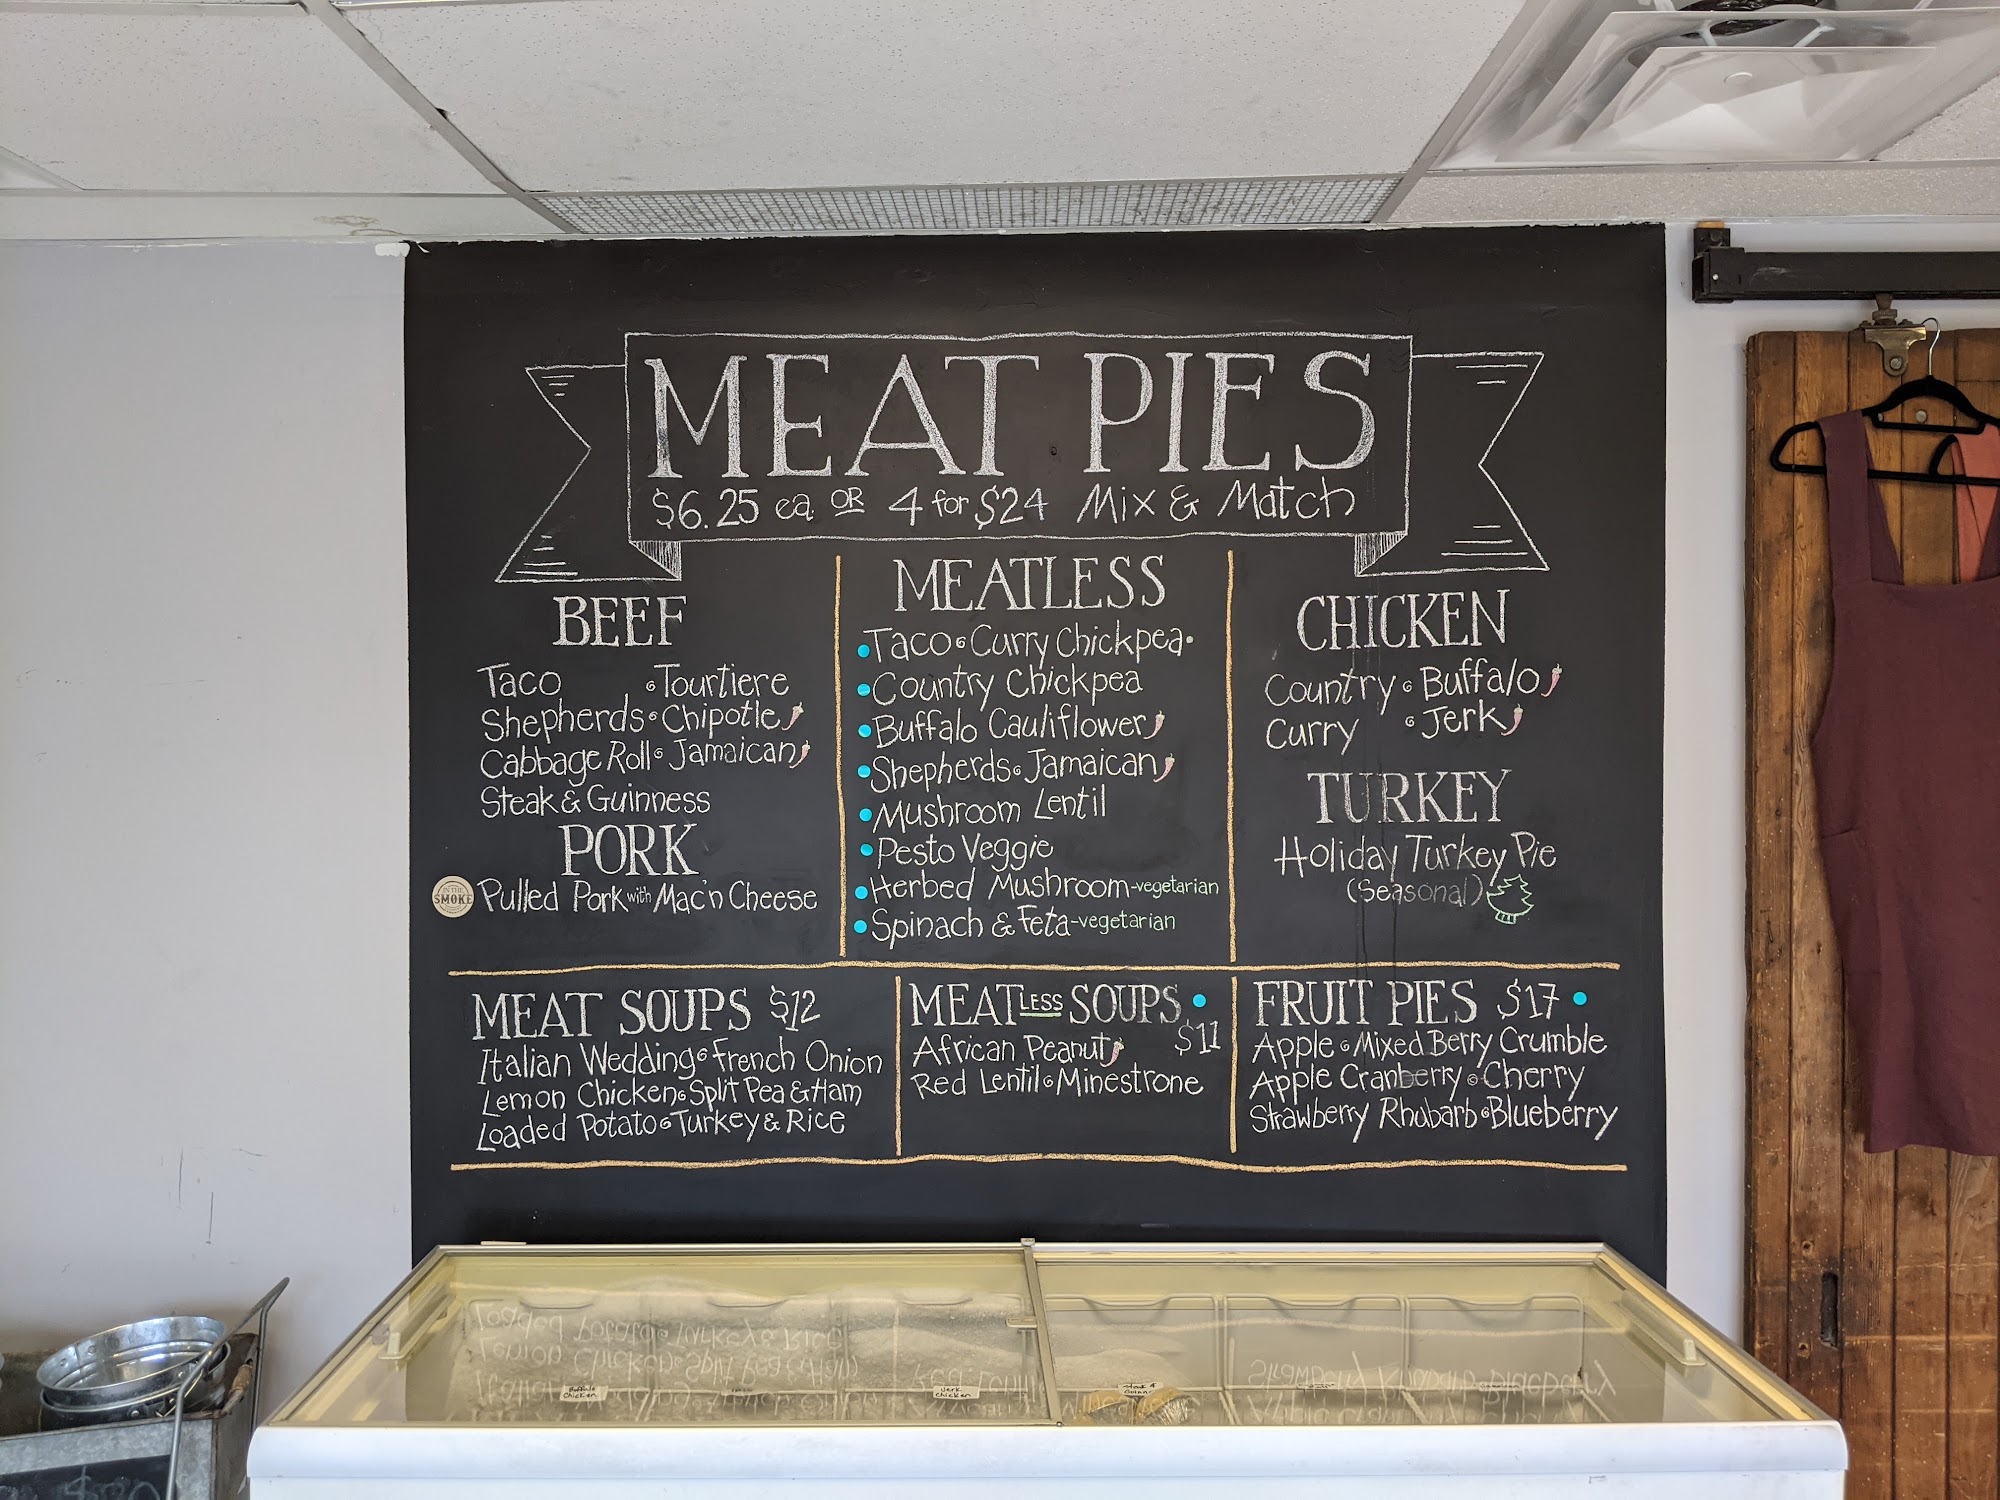 MEAT PIES
$6.25 ea OR 4 for $24 Mix & Match
BEEF
Taco • Tourtiere
Shepherds • Chipotle
Cabbage Roll • Jamaican
Steak & Guinness
PORK
IN THE SMOKE
Pulled Pork with Mac'n Cheese
MEATLESS
Taco • Curry Chickpea •
Country Chickpea
Buffalo Cauliflower
Shepherds • Jamaican
Mushroom Lentil
Pesto Veggie
Herbed Mushroom -vegetarian
Spinach & Feta -vegetarian
CHICKEN
Country • Buffalo
Curry • Jerk
TURKEY
Holiday Turkey Pie
(Seasonal)
MEAT SOUPS $12
Italian Wedding • French Onion
Lemon Chicken • Split Pea & Ham
Loaded Potato • Turkey & Rice
MEATLESS SOUPS
$11
African Peanut
Red Lentil • Minestrone
FRUIT PIES $17
Apple • Mixed Berry Crumble
Apple Cranberry • Cherry
Strawberry Rhubarb • Blueberry
Buffalo
Chicken
Jerk
Chicken